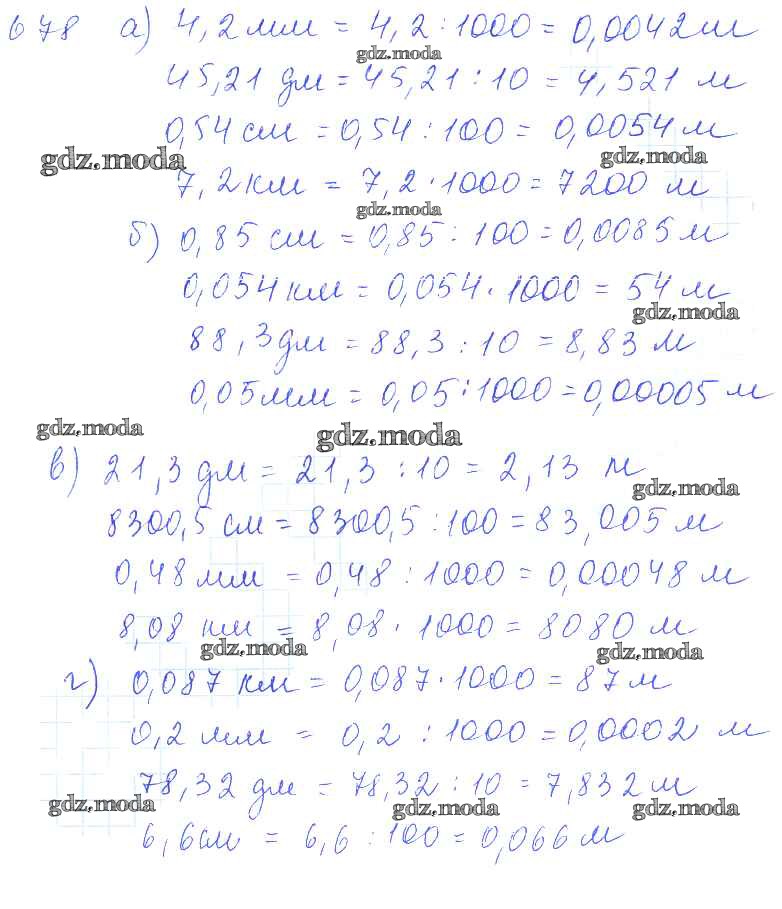 678 а) 4,2 мм = 4,2 : 1000 = 0,0042 м
gdz.moda
45,21 дм = 45,21 : 10 = 4,521 м
0,54 см = 0,54 : 100 = 0,0054 м
gdz.moda gdz.moda
7,2 км = 7,2 · 1000 = 7200 м
gdz.moda
б) 0,85 см = 0,85 : 100 = 0,0085 м
0,054 км = 0,054 · 1000 = 54 м
gdz.moda
88,3 дм = 88,3 : 10 = 8,83 м
0,05 мм = 0,05 : 1000 = 0,00005 м
gdz.moda gdz.moda
в) 21,3 дм = 21,3 : 10 = 2,13 м
gdz.moda
8300,5 см = 8300,5 : 100 = 83,005 м
0,48 мм = 0,48 : 1000 = 0,00048 м
8,08 км = 8,08 · 1000 = 8080 м
gdz.moda gdz.moda
г) 0,087 км = 0,087 · 1000 = 87 м
0,2 мм = 0,2 : 1000 = 0,0002 м
78,32 дм = 78,32 : 10 = 7,832 м
gdz.moda gdz.moda gdz.moda
6,6 см = 6,6 : 100 = 0,066 м